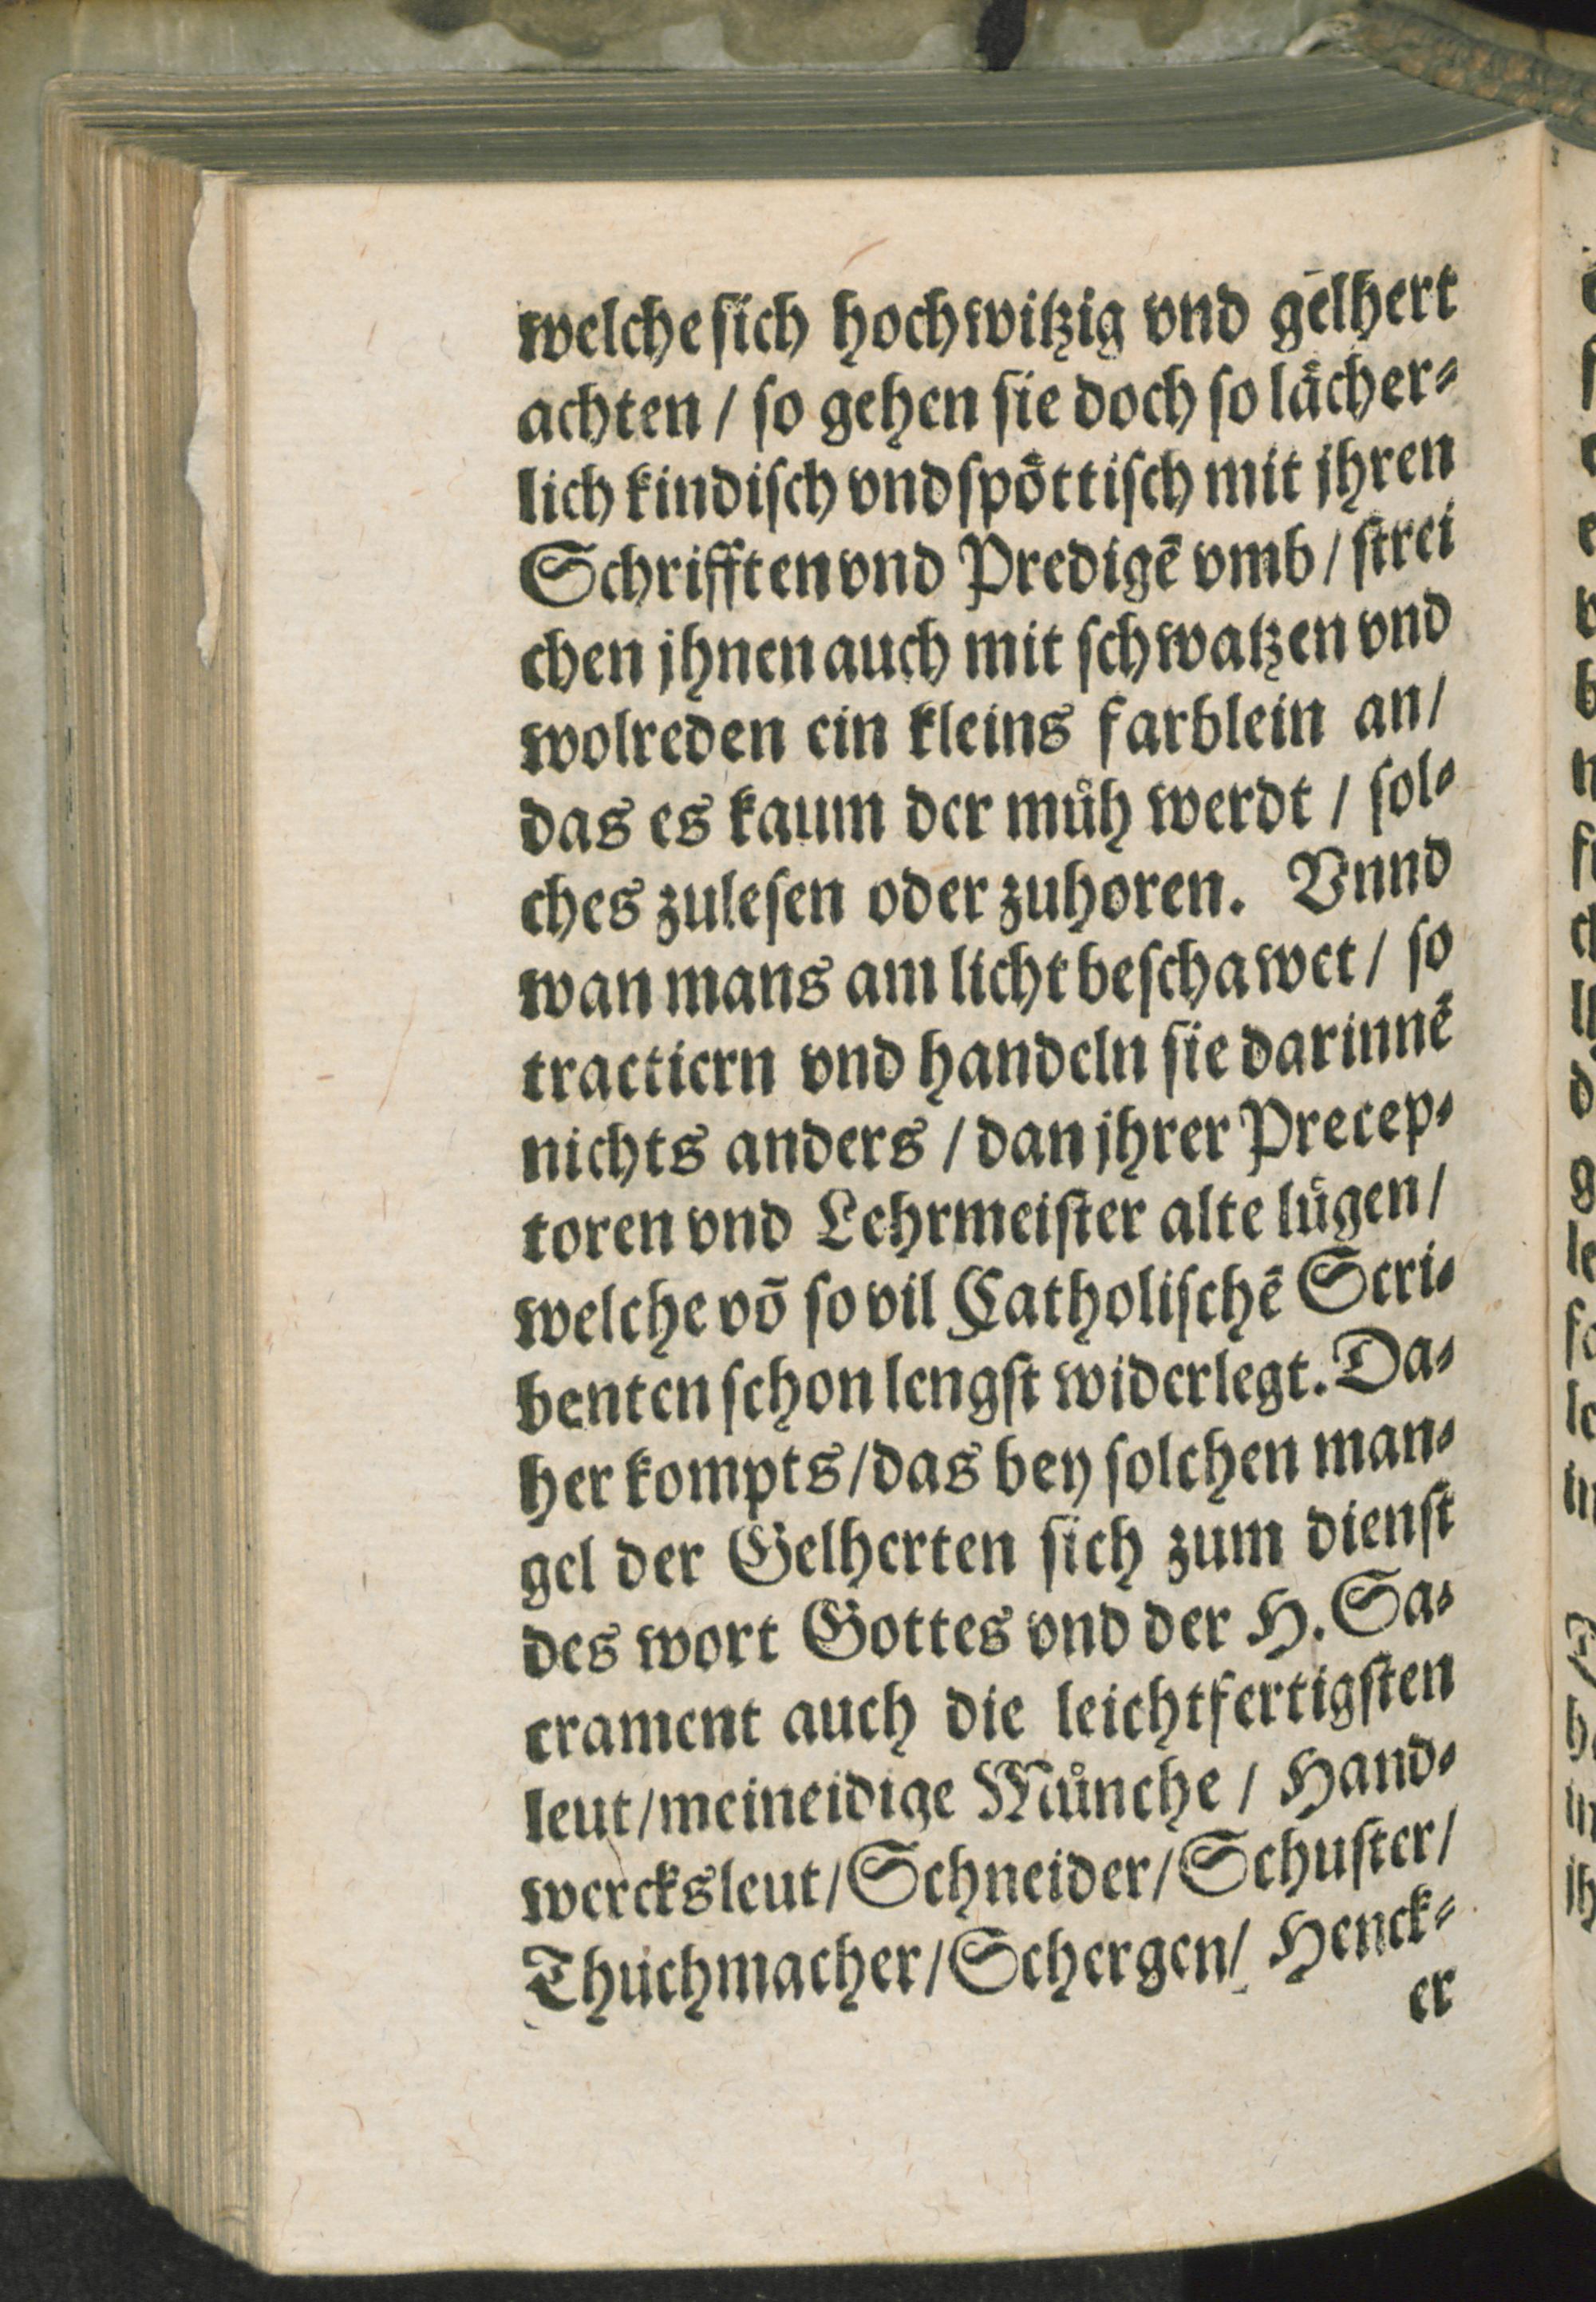 welche sich hochwitzig vnd gēlhert
achten / so gehen sie doch so laͤcher⸗
lich kindisch vnd spoͤttisch mit jhren
Schrifften vnd Predigē vmb / strei
chen jhnen auch mit schwatzen vnd
wolreden ein kleins farblein an /
das es kaum der muͤh werdt / sol⸗
ches zulesen oder zuhoren. Vnnd
wan mans am licht beschawet / so
tractiern vnd handeln sie darinnē
nichts anders / dan jhrer Precep⸗
toren vnd Lehrmeister alte luͤgen /
welche vō so vil Catholischē Scri⸗
benten schon lengst widerlegt. Da⸗
her kompts / das bey solchen man⸗
gel der Gelherten sich zum dienst
des wort Gottes vnd der H. Sa⸗
crament auch die leichtfertigsten
leut / meineidige Muͤnche / Hand⸗
wercksleut / Schneider / Schuster /
Thuchmacher / Schergen / Henck⸗
er